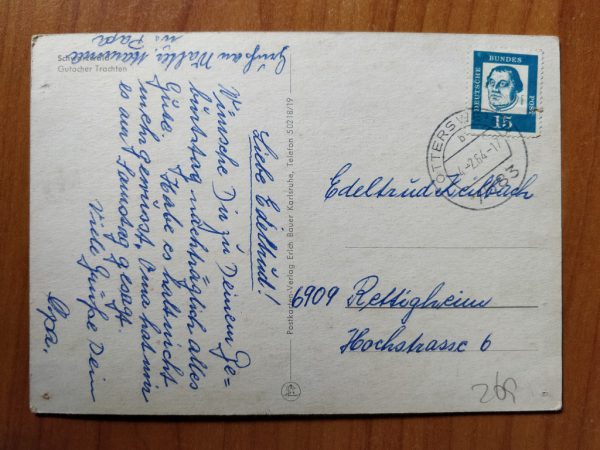 Schwarzwald
Gutacher Trachten
Gruß an Walter, Mamma
u. Papa
Liebe Edeltrud!
Wünsche Dir zu Deinem Ge-
burtstag nachträglich alles
Gute. Habe es halt nicht
mehr gewusst, Oma hat mir
es am Samstag gesagt.
Viele Grüße Dein
Opa.
Postkarten-Verlag Erich Bauer Karlsruhe, Telefon 50218/19
DEUTSCHE BUNDESPOST
15
OTTERSW
b
-2.64-17
7583
Edeltrud Keilbach
6909 Rettigheim
Hochstrasse 6
269